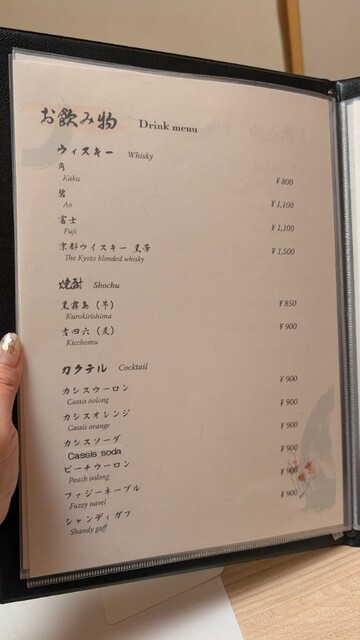 お飲み物 Drink menu
ウィスキー Whisky
角
Kaku ¥800
碧
Ao ¥1,100
富士
Fuji ¥1,100
京都ウイスキー 黒帯 ¥1,500
The Kyoto blended whisky
焼酎 Shochu
黒霧島（芋） ¥850
Kurokirishima
吉四六（麦） ¥900
Kicchomu
カクテル Cocktail
カシスウーロン ¥900
Cassis oolong
カシスオレンジ ¥900
Cassis orange
カシスソーダ ¥900
Cassis soda
ピーチウーロン ¥900
Peach oolong
ファジーネーブル ¥900
Fuzzy navel
シャンディガフ ¥900
Shandy gaff